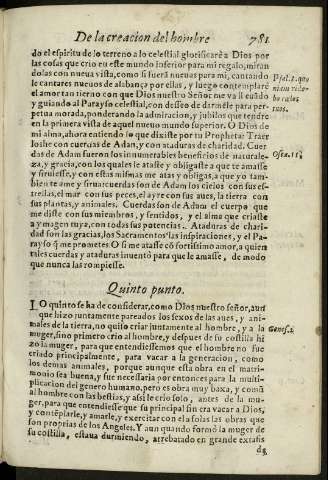 De la creacion del hombre 781
do el espiritu de lo terreno a lo celestial, glorificarè a Dios por
las cosas que crio en este mundo inferior para mi regalo, miran
dolas con nueva vista, como si fuerã nuevas para mi, cantando
le cantares nuevos de alabança por ellas, y luego contemplarè
el amor tan tierno con que Dios nuestro Señor me va llevãdo
y guiando al Parayso celestial, con desseo de darmele para per-
petua morada, ponderando la admiracion, y jubilos que tendre
en la primera vista de aquel nuevo mundo superior. O Dios de
mi alma, ahora entiendo lo que dixiste por tu Propheta: Traer
los he con cuerdas de Adan, y con ataduras de charidad. Cuer
das de Adam fueron los innumerables beneficios de naturale-
za, y gracia, con los quales le ataste y obligaste a que te amasse
y sirviesse, y con estas mismas me atas y obligas, a que yo tam-
bien te ame y sirva: cuerdas son de Adam los cielos con sus es-
trellas, el mar con sus peces, el ayre con sus aues, la tierra con
sus plantas, y animales. Cuerdas son de Adam el cuerpo que
me diste con sus miembros, y sentidos, y el alma que criaste
a ymagen tuya, con todas sus potencias. Ataduras de chari-
dad son las gracias, los Sacramentos, las inspiraciones, y el Pa-
rayso q̃ me prometes. O si me atasse cõ fortissimo amor, a quien
tales cuerdas y ataduras inventò para que le amasse, de modo
que nunca las rompiesse.
Psal. 1.
Osea. 11.
Quinto punto.
LO quinto se ha de considerar, como Dios nuestro señor, aun
que hizo juntamente pareados los sexos de las aues, y ani-
males de la tierra, no quiso criar juntamente al hombre, y a la
muger, sino primero crio al hombre, y despues de su costilla hi
zo la muger, para que entendiessemos que el hombre no fue
criado principalmente, para vacar a la generacion, como
los demas animales, porque aunque esta obra en el matri-
monio sea buena, y fue necessaria por entonces para la multi-
plicacion del genero humano, pero es obra muy baxa, y comũ
al hombre con las bestias, y assi le crio solo, antes de la mu-
ger, para que entendiesse que su principal fin era vacar a Dios,
y contẽplarle, y amarle, y exercitar con el a solas las obras que
son proprias de los Angeles. Y aun quando formò la muger de
su costilla, estaua durmiendo, arrebatado en grande extasis
Genes. 2